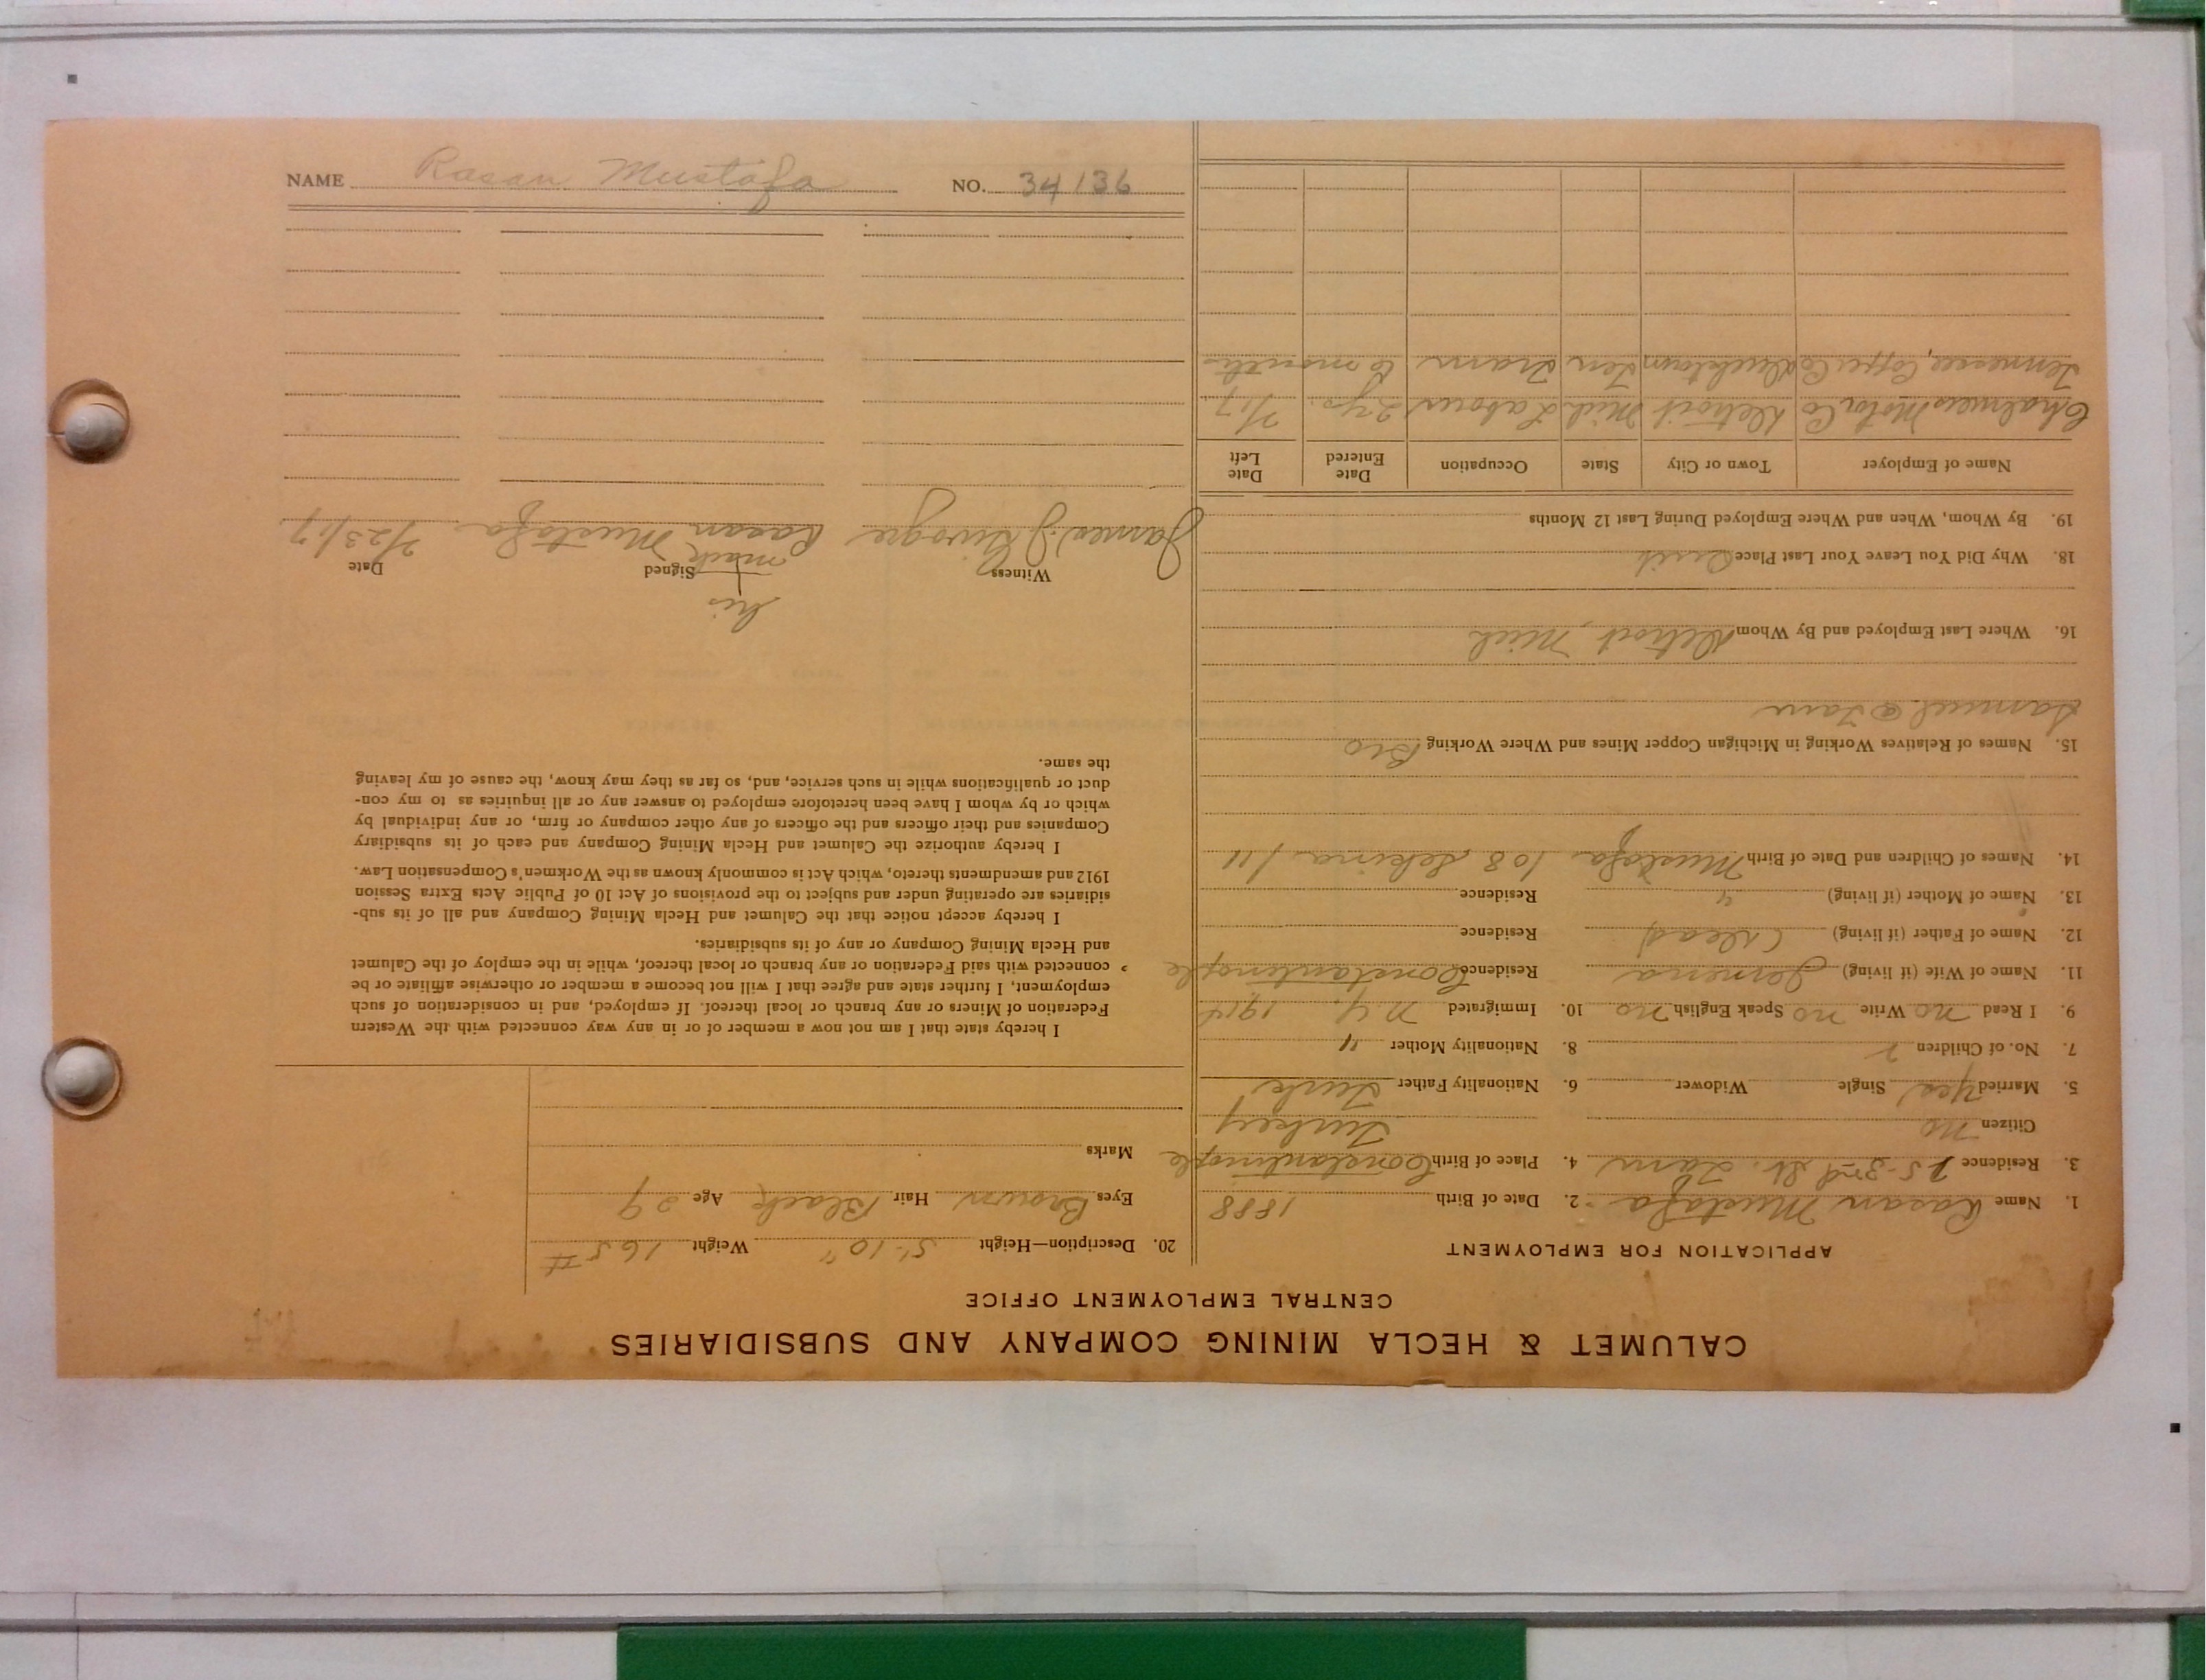 CALUMET & HECLA MINING COMPANY AND SUBSIDIARIES
CENTRAL EMPLOYMENT OFFICE
APPLICATION FOR EMPLOYMENT
1. Name Rasan Mustafa 2. Date of Birth 1888
3. Residence 75-3rd St. Tam 4. Place of Birth Constantinople
Citizen no Turkey
5. Married Yes Single Widower 6. Nationality Father Turk
7. No. of Children 2 8. Nationality Mother "
9. I Read no Write no Speak English no 10. Immigrated N.Y. 1914
11. Name of Wife (if living) Residence Constantinople
12. Name of Father (if living) (Dead) Residence
13. Name of Mother (if living) " Residence
14. Names of Children and Date of Birth Mustafa /08 /11
15. Names of Relatives Working in Michigan Copper Mines and Where Working Bro
Samuel @ Tam
16. Where Last Employed and By Whom Detroit, Mich
18. Why Did You Leave Your Last Place Quit
19. By Whom, When and Where Employed During Last 12 Months
Name of Employer Town or City State Occupation Date Entered Date Left
Chalmers Motor Co Detroit Mich Labour 2 yrs. 7/17
Tennessee, Copper Co Ducktown Ten Tram 6 months
20. Description—Height 5'-10" Weight 165#
Eyes Brown Hair Black Age 29
Marks
I hereby state that I am not now a member of or in any way connected with the Western
Federation of Miners or any branch or local thereof. If employed, and in consideration of such
employment, I further state and agree that I will not become a member or otherwise affiliate or be
connected with said Federation or any branch or local thereof, while in the employ of the Calumet
and Hecla Mining Company or any of its subsidiaries.
I hereby accept notice that the Calumet and Hecla Mining Company and all of its sub-
sidiaries are operating under and subject to the provisions of Act 10 of Public Acts Extra Session
1912 and amendments thereto, which Act is commonly known as the Workmen's Compensation Law.
I hereby authorize the Calumet and Hecla Mining Company and each of its subsidiary
Companies and their officers and the officers of any other company or firm, or any individual by
which or by whom I have been heretofore employed to answer any or all inquiries as to my con-
duct or qualifications while in such service, and, so far as they may know, the cause of my leaving
the same.
his
Witness Signed Date
mark
James J Rasan Mustafa 7/23/17
NAME Rasan Mustafa NO. 34136